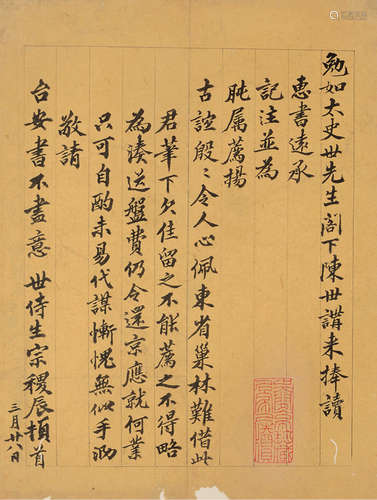 勉如太史世先生阁下陳世講来捧讀
惠書遠承
記注並為
肫属薦揚
古誼殷殷令人心佩東省巢林難借此
君筆下欠佳留之不能薦之不得略
為湊送盤費仍令還京應就何業
只可自酌未易代謀慚愧無似手泐
敬請
台安書不盡意 世侍生宗稷辰頓首
三月廿八日